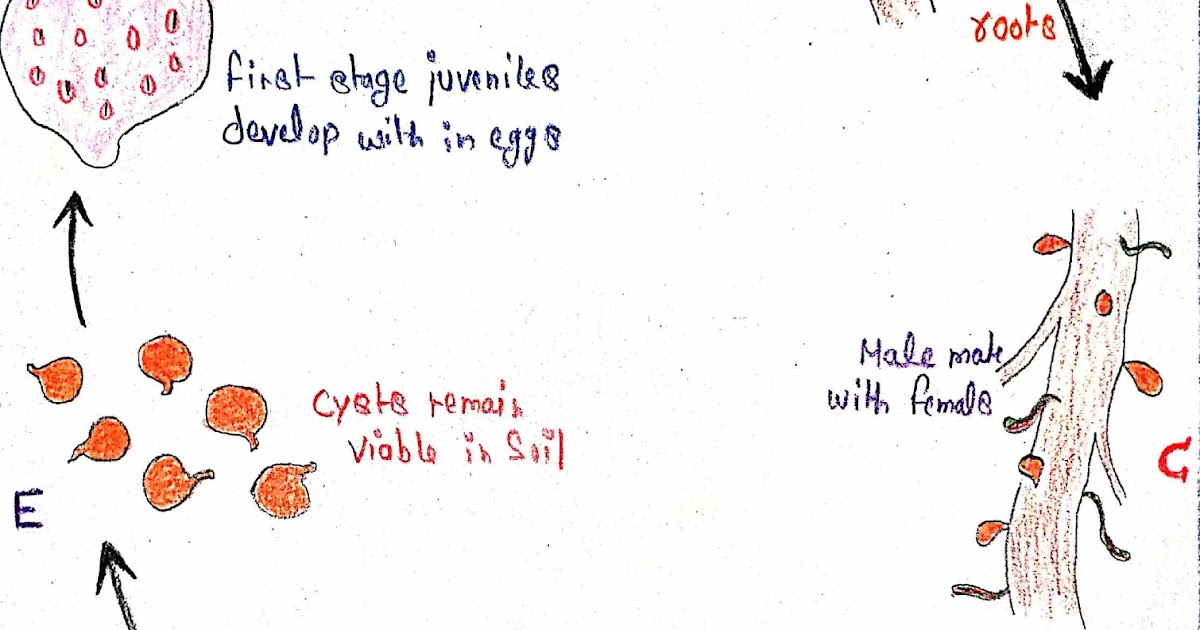 roots
First stage juveniles
develop with in eggs
Male mate
with female
Cysts remain
viable in Soil
C
E